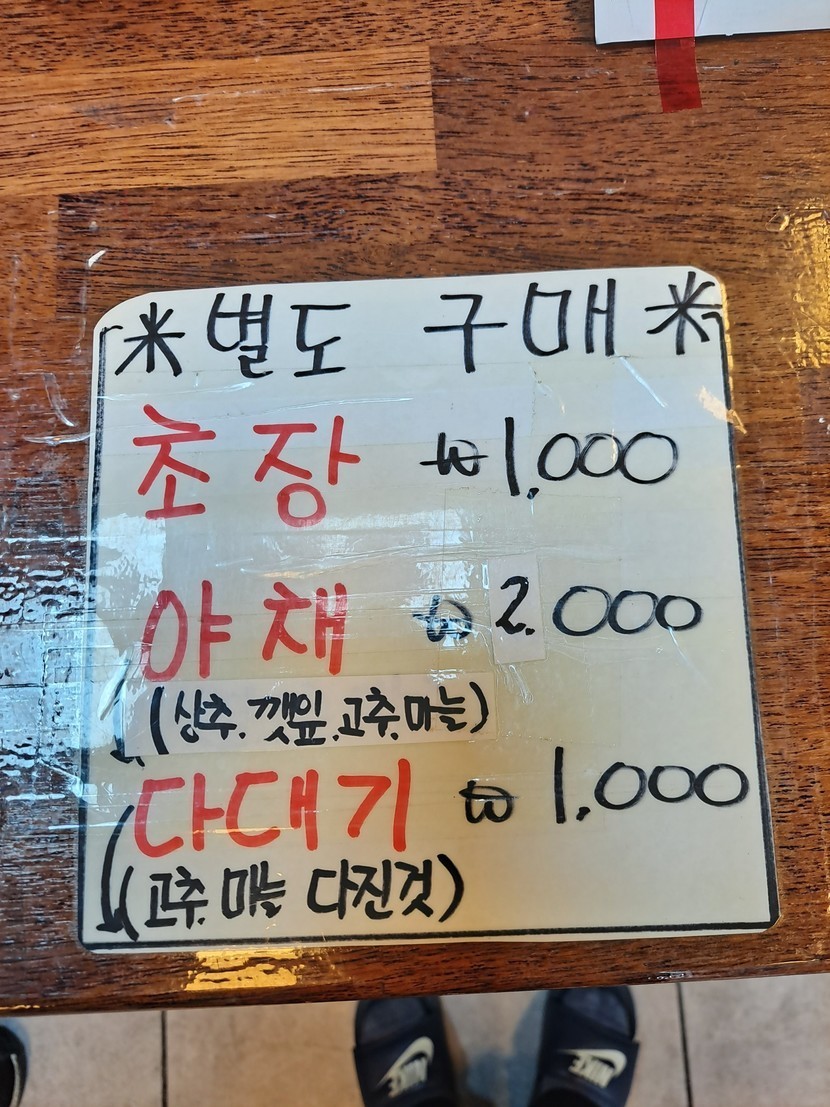 * 별도 구매 *
초장 ₩1,000
야채 ₩2.000
(상추. 깻잎. 고추. 마늘)
다대기 ₩1.000
(고추. 마늘 다진것)
NIKE
NIKE